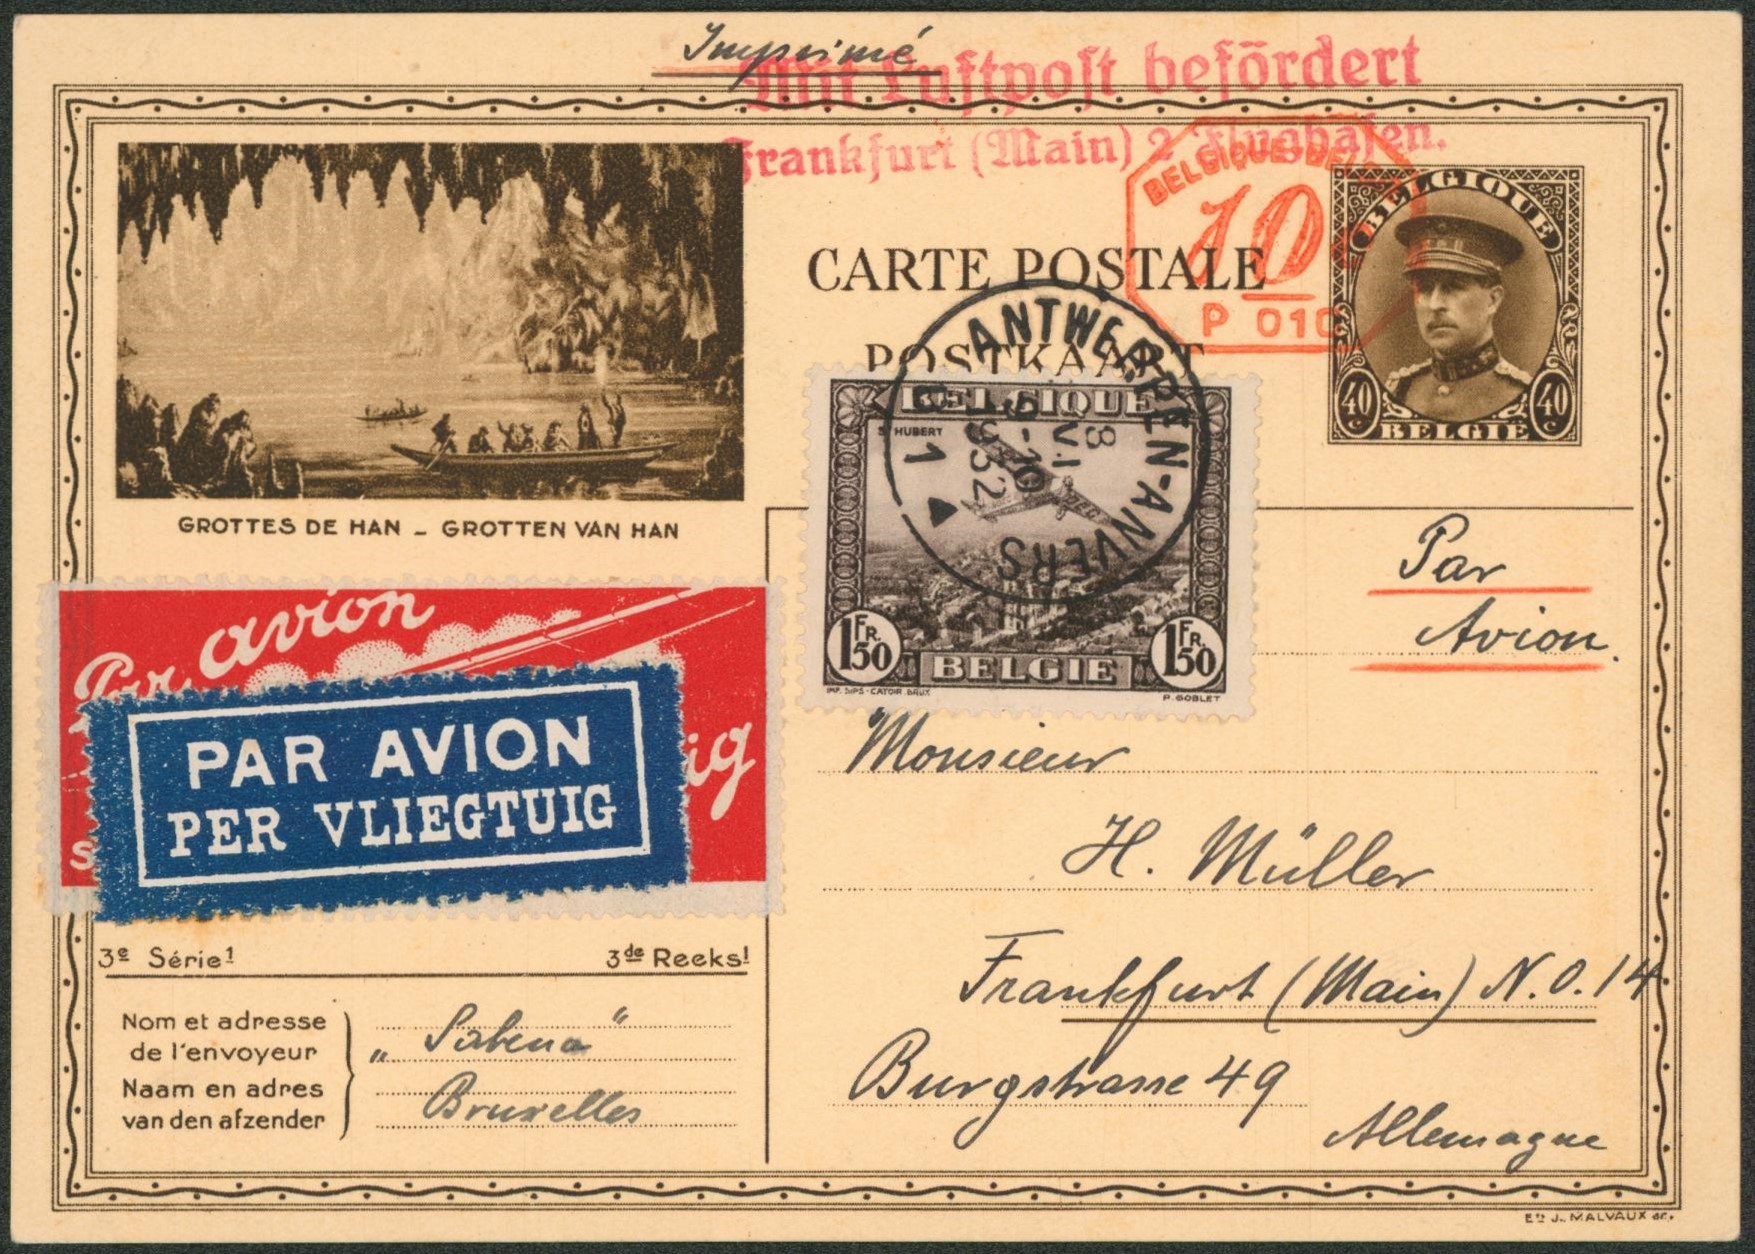 Imprimé
Mit Luftpost befördert
Frankfurt (Main) 2 Flughafen.
BELGIQUE-BEL
10
P 010
BELGIQUE
40 c 40 c
BELGIË
CARTE POSTALE
POSTKAART
GROTTES DE HAN - GROTTEN VAN HAN
ANTWERPEN-ANVERS
8
VI
9-10
1932
B 1
BELGIQUE
St HUBERT
1 FR. 50
BELGIE
1 FR. 50
IMP. DIPS-CATOIR. BRUX
P. GOBLET
Par
Avion.
Par avion
ig
s
PAR AVION
PER VLIEGTUIG
Monsieur
H. Müller
Frankfurt (Main) N.O. 14
Burgstrasse 49
Allemagne
3e Série1
3de Reeks1
Nom et adresse
de l'envoyeur
Naam en adres
van den afzender
„Sabena“
Bruxelles
Ets J. MALVAUX